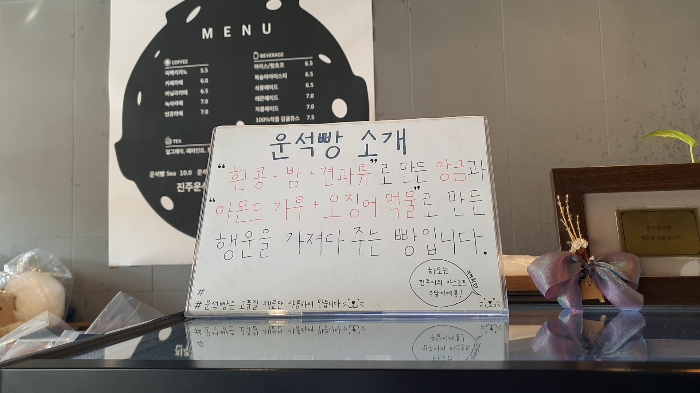 MENU
COFFEE
아메리카노 5.5
카페라떼 6.0
바닐라라떼 6.5
녹차라떼 7.0
민증라떼 7.0
BEVERAGE
아이스/핫초코 6.5
복숭아아이스티 6.5
석류에이드 6.5
레몬에이드 7.0
자몽에이드 7.0
100%착즙 감귤쥬스 7.5
TEA
얼그레이, 페퍼민트,
운석빵 5ea 10.0
진주운석
운석빵 소개
"흰콩 + 밤 + 견과류"로 만든 앙금과
"아몬드 가루 + 오징어 먹물"로 만든
행운을 가져다 주는 빵입니다.
#
#운석빵은 고품질 재료만 사용하여 만듭니다
하모는
진주시의 마스코트
수달이에용!